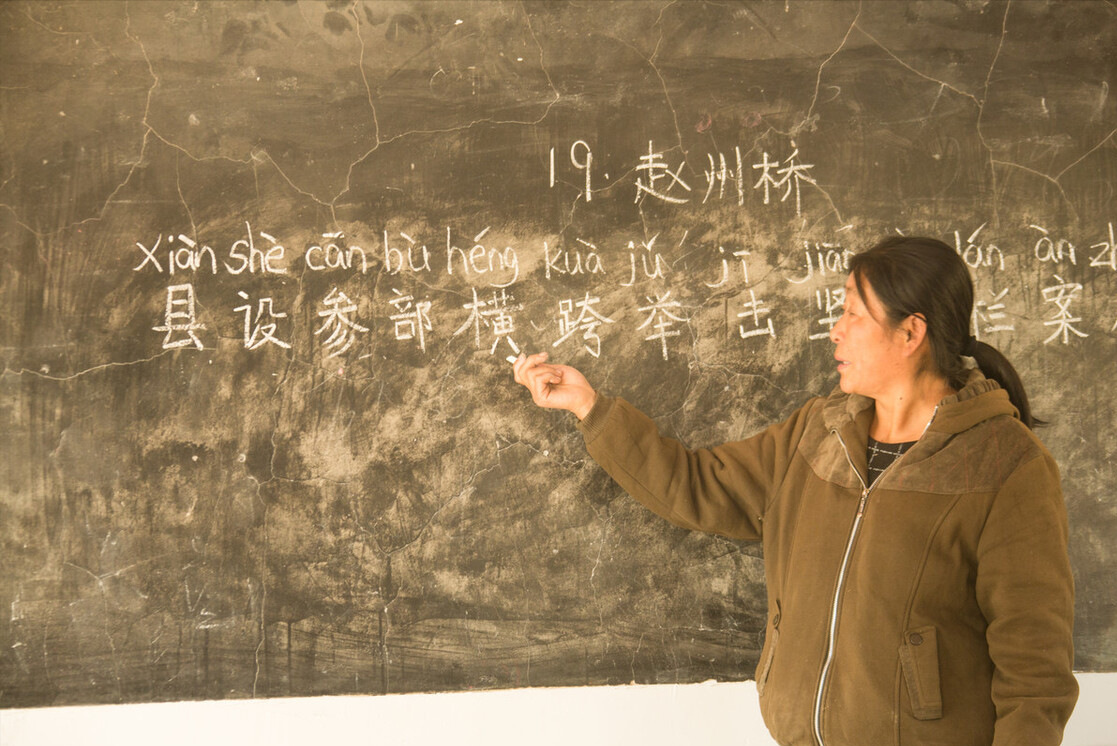 19. 赵州桥
xiàn shè cān bù héng kuà jǔ jī jiān lán àn
县 设 参 部 横 跨 举 击 坚 栏 案